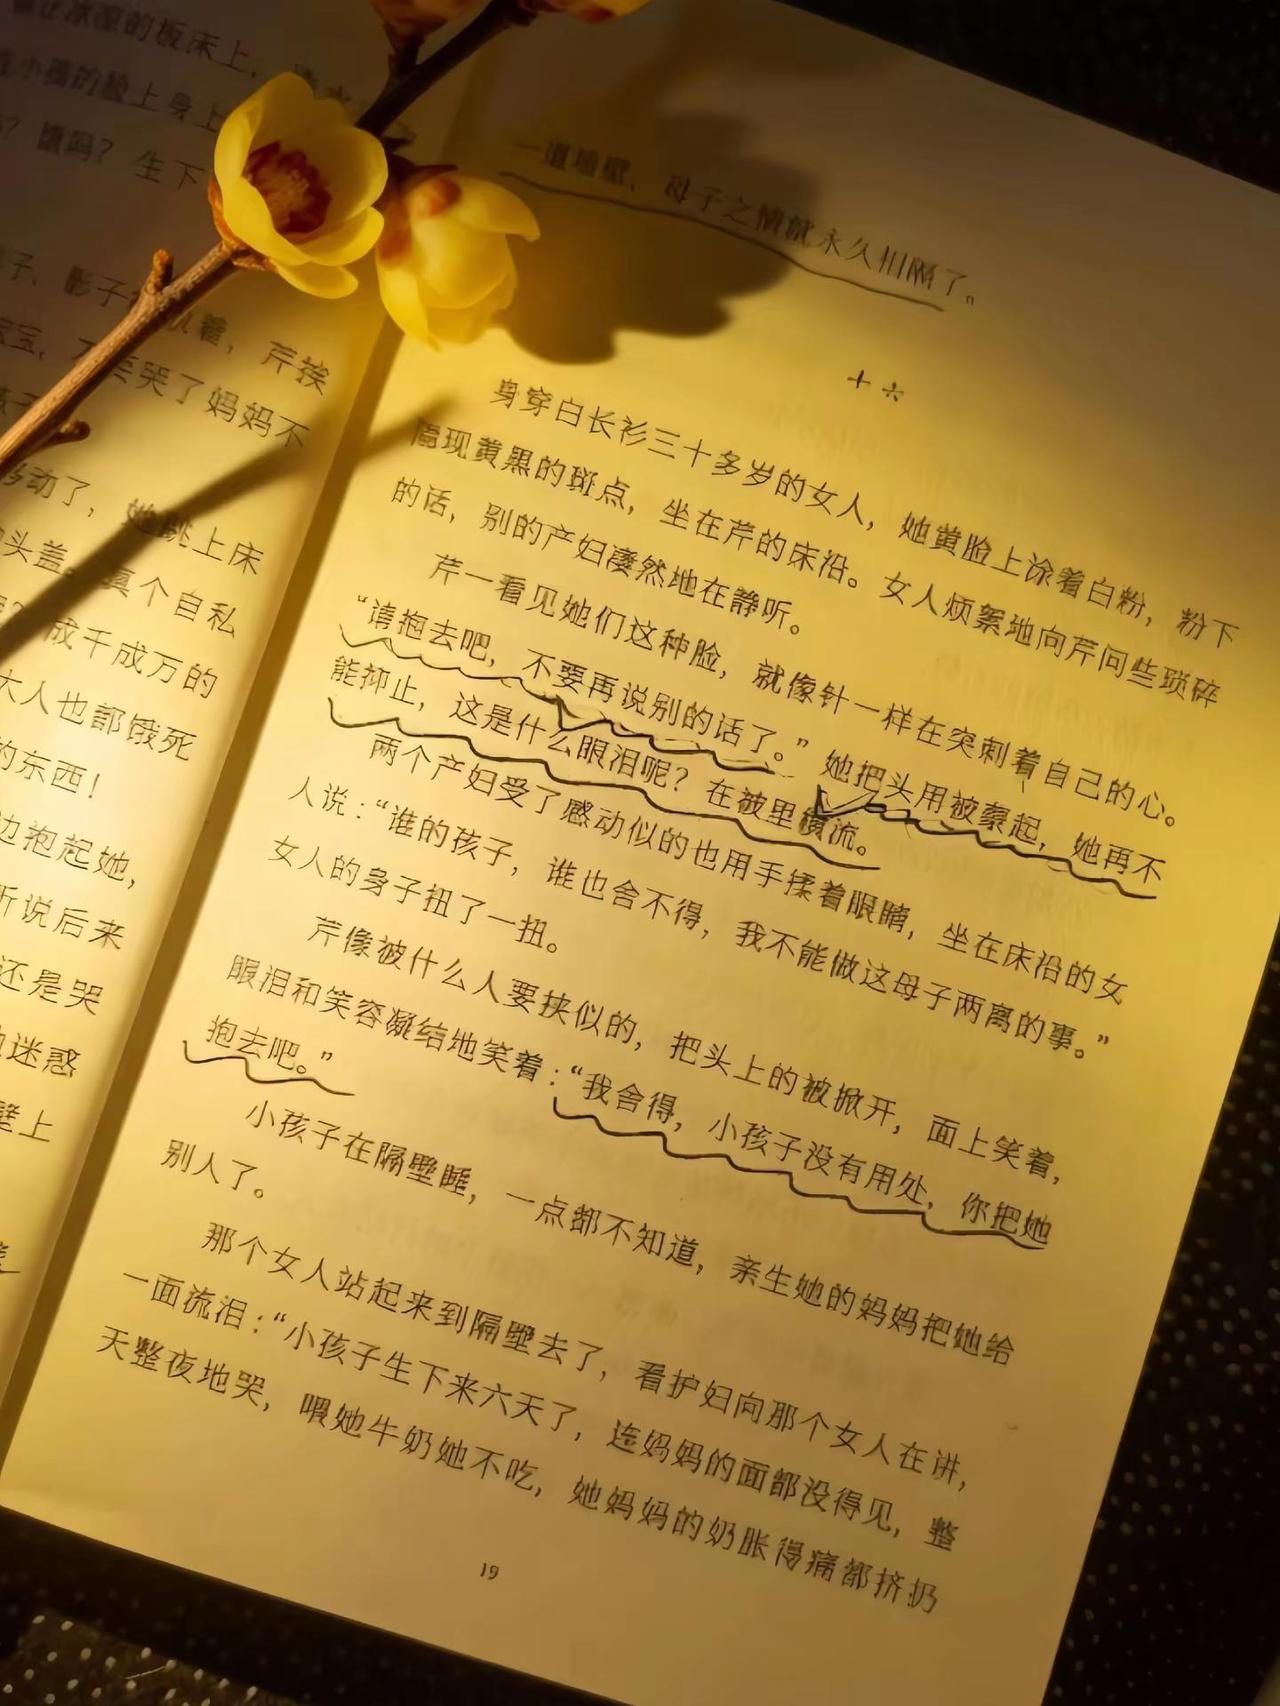 冰凉的板床上，
小孩的脸上身上
？馋吗？生下
子、影子 着，芹挨
宝，不要哭了妈妈不
移动了，她跳上床
头盖。真个自私
？成千成万的
大人也都饿死
的东西！
边抱起她，
听说后来
还是哭
迷惑
壁上
一道墙壁、母子之情就永久相隔了。
十六
身穿白长衫三十多岁的女人，她黄脸上涂着白粉，粉下
隐现黄黑的斑点，坐在芹的床沿。女人烦絮地向芹问些琐碎
的话，别的产妇凄然地在静听。
芹一看见她们这种脸，就像针一样在突刺着自己的心。
“请抱去吧，不要再说别的话了。”她把头用被蒙起，她再不
能抑止，这是什么眼泪呢？在被里横流。
两个产妇受了感动似的也用手揉着眼睛，坐在床沿的女
人说：“谁的孩子，谁也舍不得，我不能做这母子两离的事。”
女人的身子扭了一扭。
芹像被什么人要挟似的，把头上的被掀开，面上笑着，
眼泪和笑容凝结地笑着：“我舍得，小孩子没有用处，你把她
抱去吧。”
小孩子在隔壁睡，一点都不知道，亲生她的妈妈把她给
别人了。
那个女人站起来到隔壁去了，看护妇向那个女人在讲，
一面流泪：“小孩子生下来六天了，连妈妈的面都没得见，整
天整夜地哭，喂她牛奶她不吃，她妈妈的奶胀得痛都挤扔
19